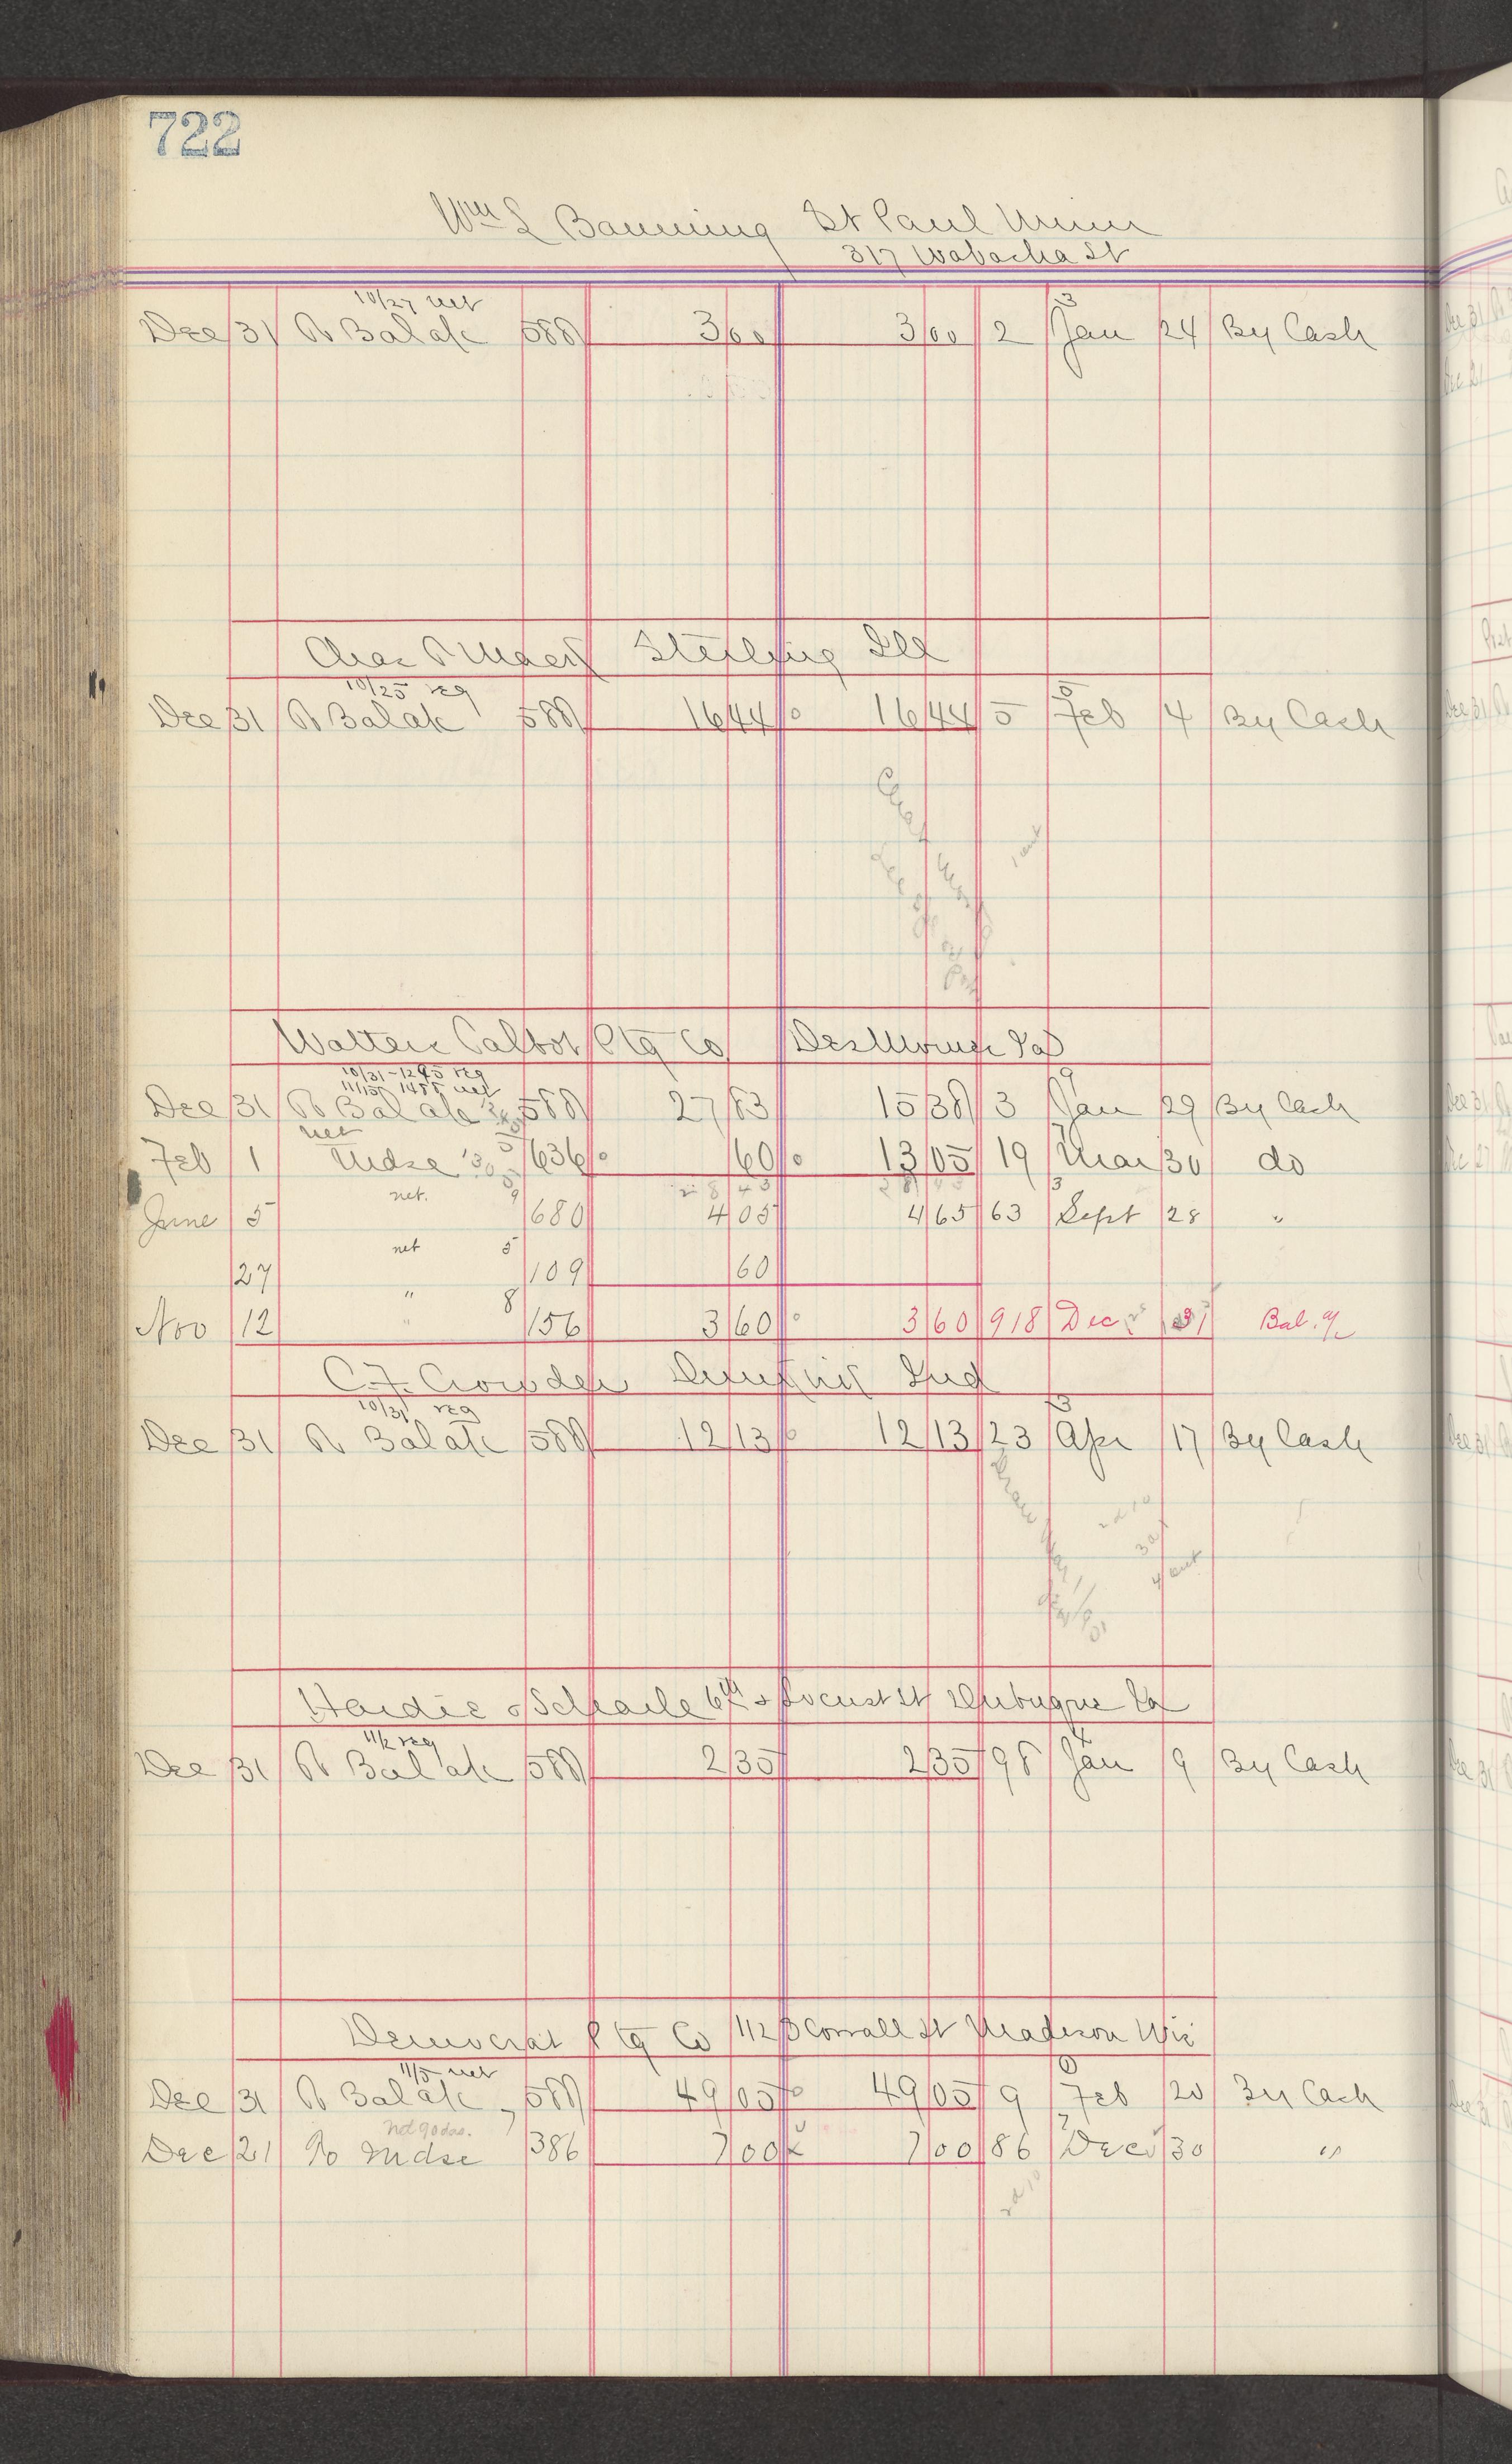 722
Wm L Banning St Paul Minn
317 Wabasha St
10/27 net
3
Dec 31 To Bal a/c 588 3 00 3 00 2 Jan 24 By Cash
Sterling Ill
10/25 reg
Dec 31 To Bal a/c 588 16 44 16 44 5 Feb 4 By Cash
Ptg Co Des Moines Ia
10/31 - 1295 reg
11/15 1455 net
Dec 31 To Bal a/c 588 27 83 15 38 3 Jan 29 By Cash
net
Feb 1 Mdse 636 60 13 05 19 Mar 30 do
net. 9
June 5 680 4 05 4 65 63 Sept 28 "
net 5
27 109 60
" 8
Nov 12 " 156 3 60 3 60 918 Dec 31 Bal. a/c
C. F. Crowder Ind
10/31 reg
Dec 31 To Bal a/c 588 12 13 12 13 23 Apr 17 By Cash
Hardie & Scharle 6th & Locust St Dubuque Ia
11/2 reg
Dec 31 To Bal a/c 588 2 35 2 35 98 Jan 9 By Cash
Democrat Ptg Co 112 Madison Wis
11/5 net
Dec 31 To Bal a/c 588 49 05 49 05 9 Feb 20 By Cash
nd 90 das.
Dec 21 To Mdse 386 7 00 7 00 86 Dec 30 "